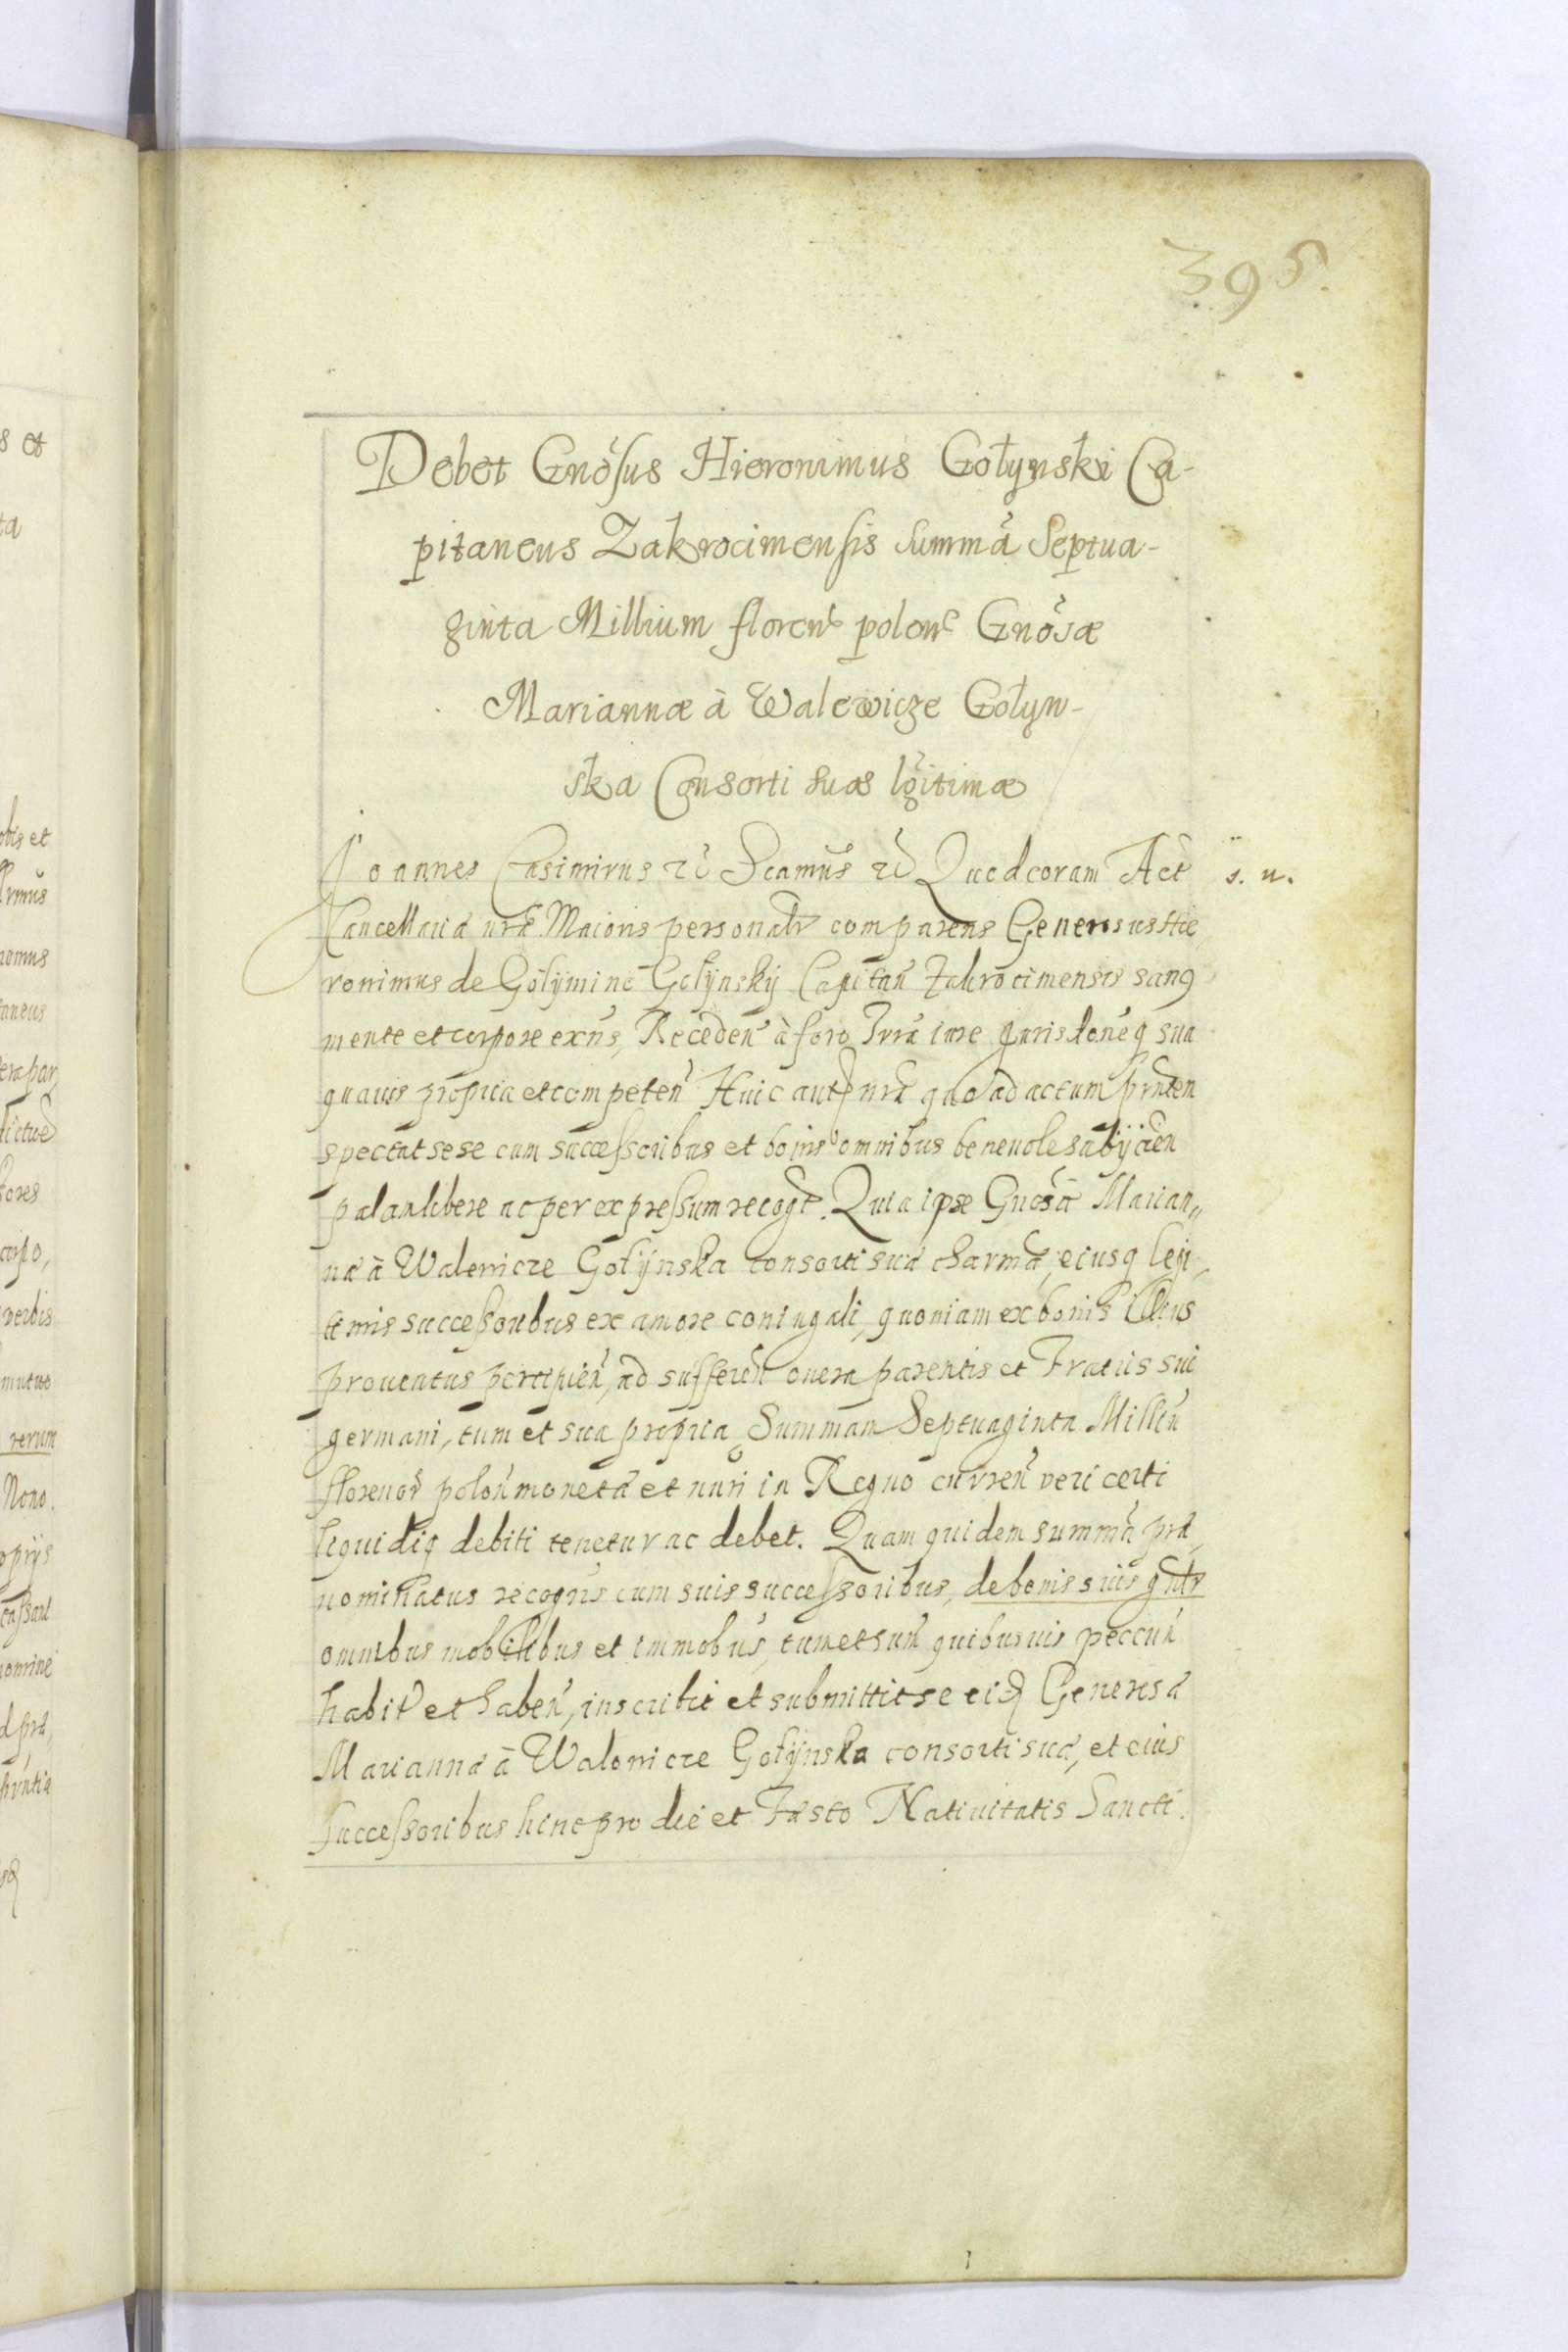 395.
Debet Gnosus Hieronimus Gołynski Ca-
pitaneus Zakrocimensis summã Septua-
ginta Millium floren polon Gnosæ
Mariannæ à Walewicze Gołyn-
ska Consorti suæ lgitimæ
Joannes Casimirus Scamus Quod coram Act s. n.
Cancellaria nrã Maioris personalr comparens Generosus Hie
ronimus de Gołymine Gołynskÿ Capitan Zakrocimensis sang
mente et corpore exns, Receden à foro iure Jurisdoneq sua
quavis propria et competen Huic autẽ nrã quo ad actum prnten
spectat sese cum successoribus et bonis omnibus benevole subijcien
palam libere ac per expressum recogt. Quia ipse Gnosã Marian„
nã à Walewicze Gołÿnska consorti suã charmã, eiusq legi,
timis successoribus ex amore coniugali, quoniam ex bonis illius
proventus percipien, ad sufferen onera parentis et Fratris sui
germani, tum et sua propria, Summam Septuaginta Milliu
florenor polon monetã et nuri in Regno curren veri certi
liquidiq debiti tenetur ac debet. Quam quidem summã præ,
nominatus recogns cum suis successoribus, de bonis suis gnlr
omnibus mobilibus et immobus, tum et sum quibusvis peccun
habit et haben, inscribit et submittit se eid Generosã
Mariannã à Walewicze Gołÿnska consorti suã, et eius
successoribus hinc pro die et Festo Nativitatis Sancti